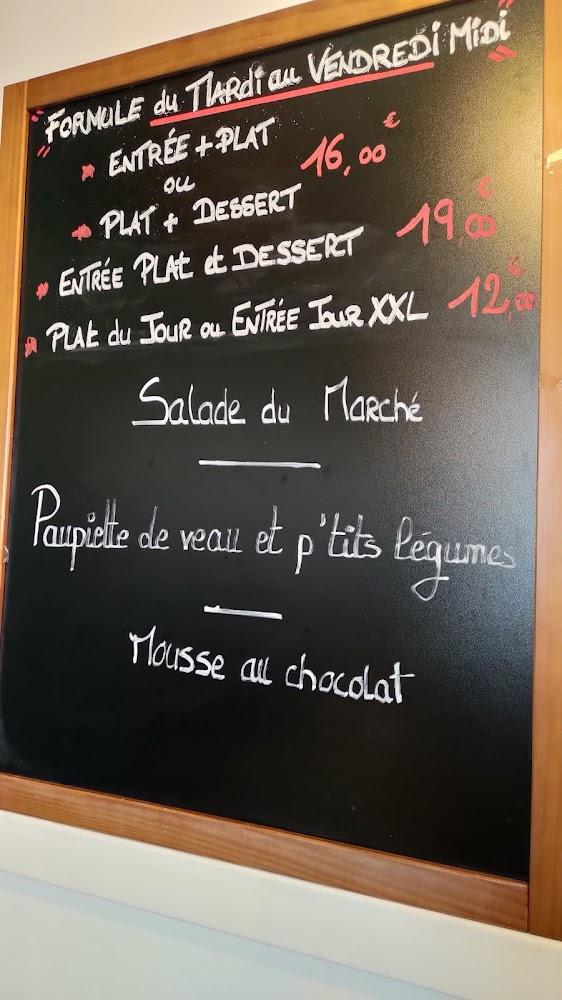 " FORMULE du MARdi au VENDREDI MIDI "
ENTRÉE + PLAT
ou
16,00€
PLAT + DESSERT
ENTRÉE PLAt et DESSERT 19,00€
PLAt du JOUR ou ENTRÉE JOUR XXL 12,00€
Salade du Marché
Paupiette de veau et p'tits légumes
Mousse au chocolat